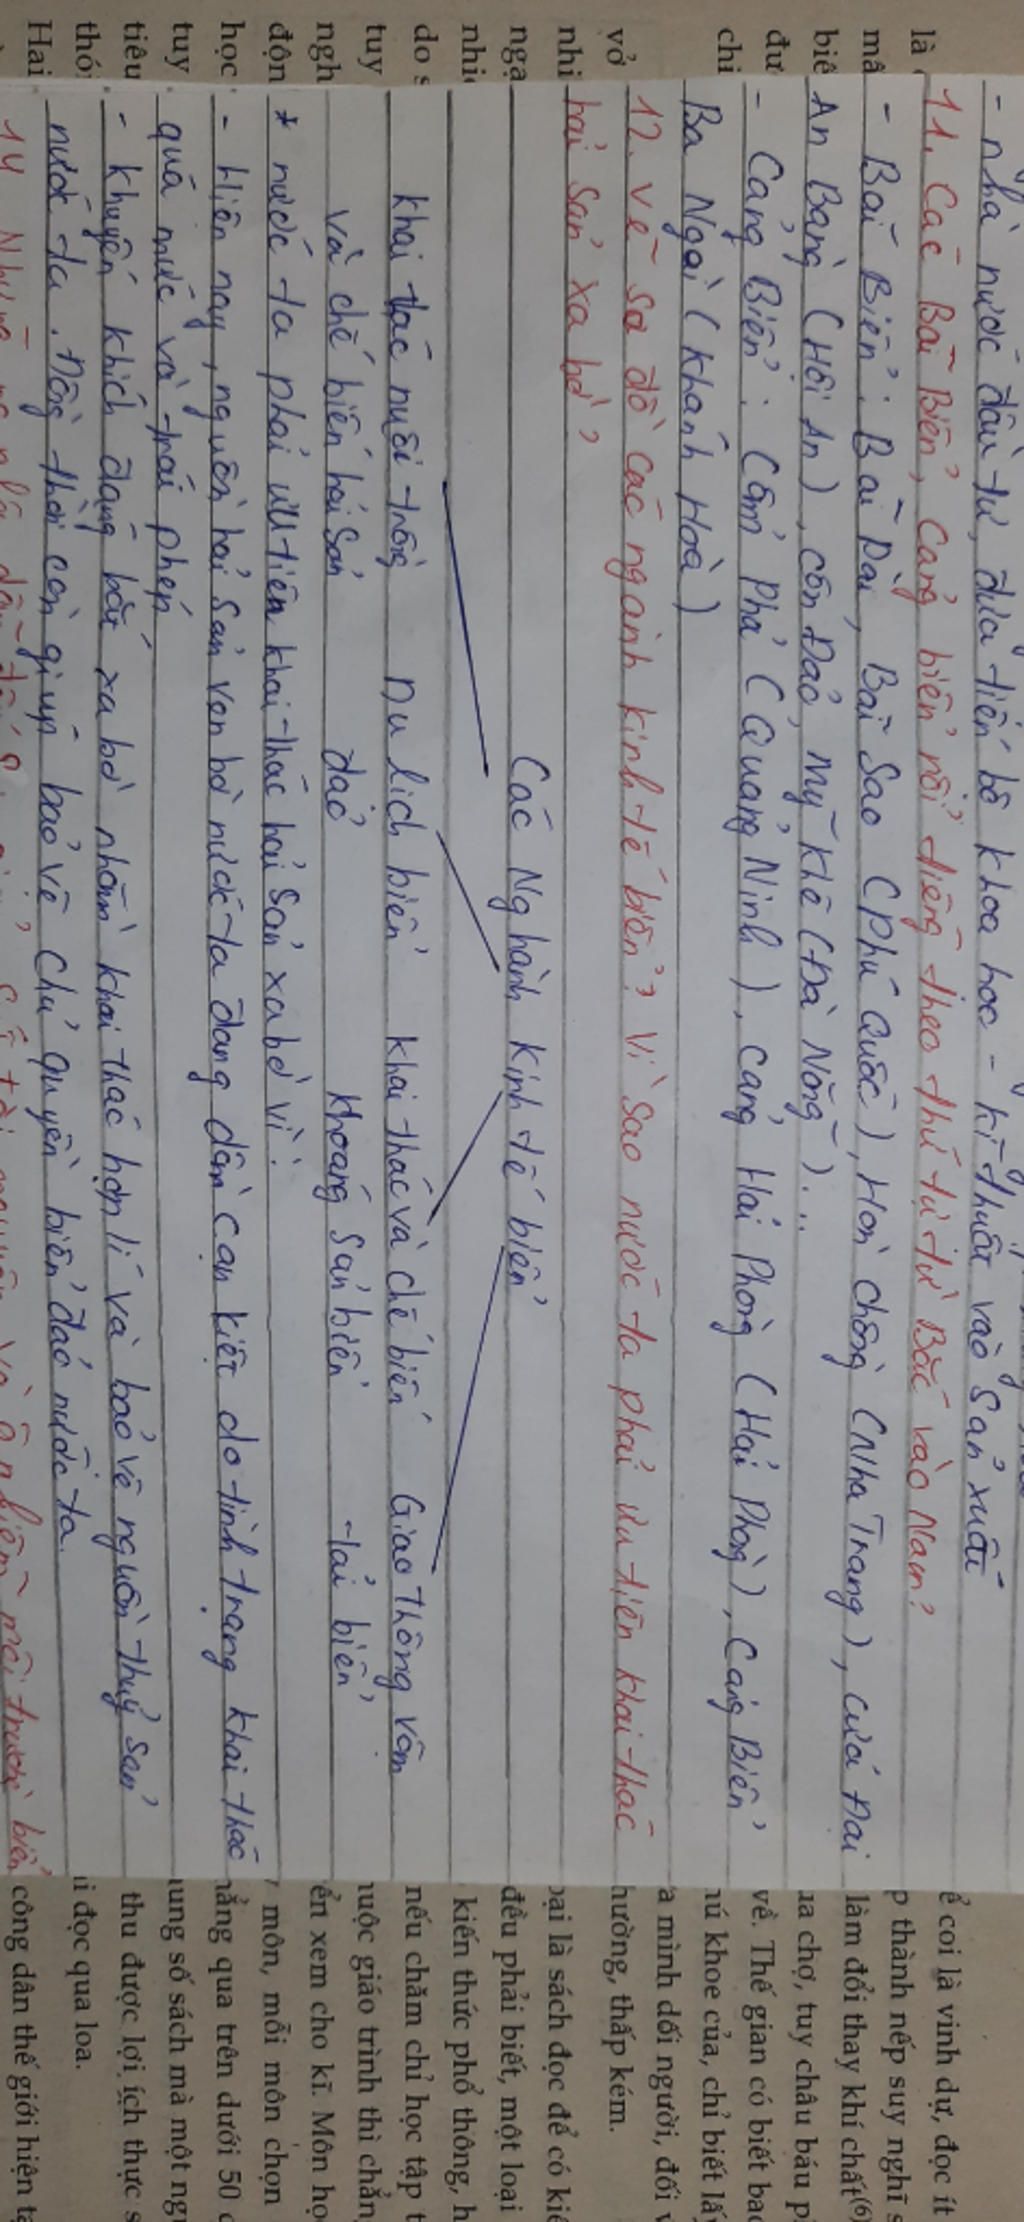 - nhà nước đầu tư, đưa tiến bộ khoa học - kĩ thuật vào sản xuất
11. Các Bãi Biển, Cảng biển nổi tiếng theo thứ tự từ Bắc vào Nam?
- Bãi Biển: Bãi Dài, Bãi Sao (Phú Quốc), Hòn chồng (Nha Trang), cửa Đại
An Bàng (Hội An), côn Đảo, Mỹ Khê (Đà Nẵng)...
- Cảng Biển: Cẩm Phả (Quảng Ninh), cảng Hải Phòng (Hải Phòng), Cảng Biển
Ba Ngòi (Khánh Hoà)
12. vẽ sơ đồ các ngành kinh tế biển? Vì sao nước ta phải ưu tiên khai thác
hải sản xa bờ?
Các Nghành kinh tế biển
khai thác nuôi trồng Du lịch biển khai thác và chế biến Giao thông vận
và chế biến hải sản đảo khoáng sản biển tải biển
* nước ta phải ưu tiên khai thác hải sản xa bờ vì:
- Hiện nay, nguồn hải sản ven bờ nước ta đang dần cạn kiệt do tình trạng khai thác
quá mức và trái phép
- khuyến khích đánh bắt xa bờ nhằm khai thác hợp lí và bảo vệ nguồn thuỷ sản
nước ta. Đồng thời còn giúp bảo vệ chủ quyền biển đảo nước ta.
là
mà
biế
đư
chi
vở
nhi
ngạ
nhiề
do s
tuy
ngh
độn
học
tuy
tiêu
thó
Hai
ể coi là vinh dự, đọc ít
p thành nếp suy nghĩ s
làm đổi thay khí chất(6)
ua chợ, tuy châu báu p
về. Thế gian có biết bao
hú khoe của, chỉ biết lấ
a mình dối người, đối v
hường, thấp kém.
oại là sách đọc để có kiế
đều phải biết, một loại
kiến thức phổ thông, h
nếu chăm chỉ học tập t
uộc giáo trình thì chẳn
ển xem cho kĩ. Môn họ
môn, mỗi môn chọn
ẳng qua trên dưới 50 c
ung số sách mà một ngư
thu được lợi ích thực s
i đọc qua loa.
công dân thế giới hiện tạ